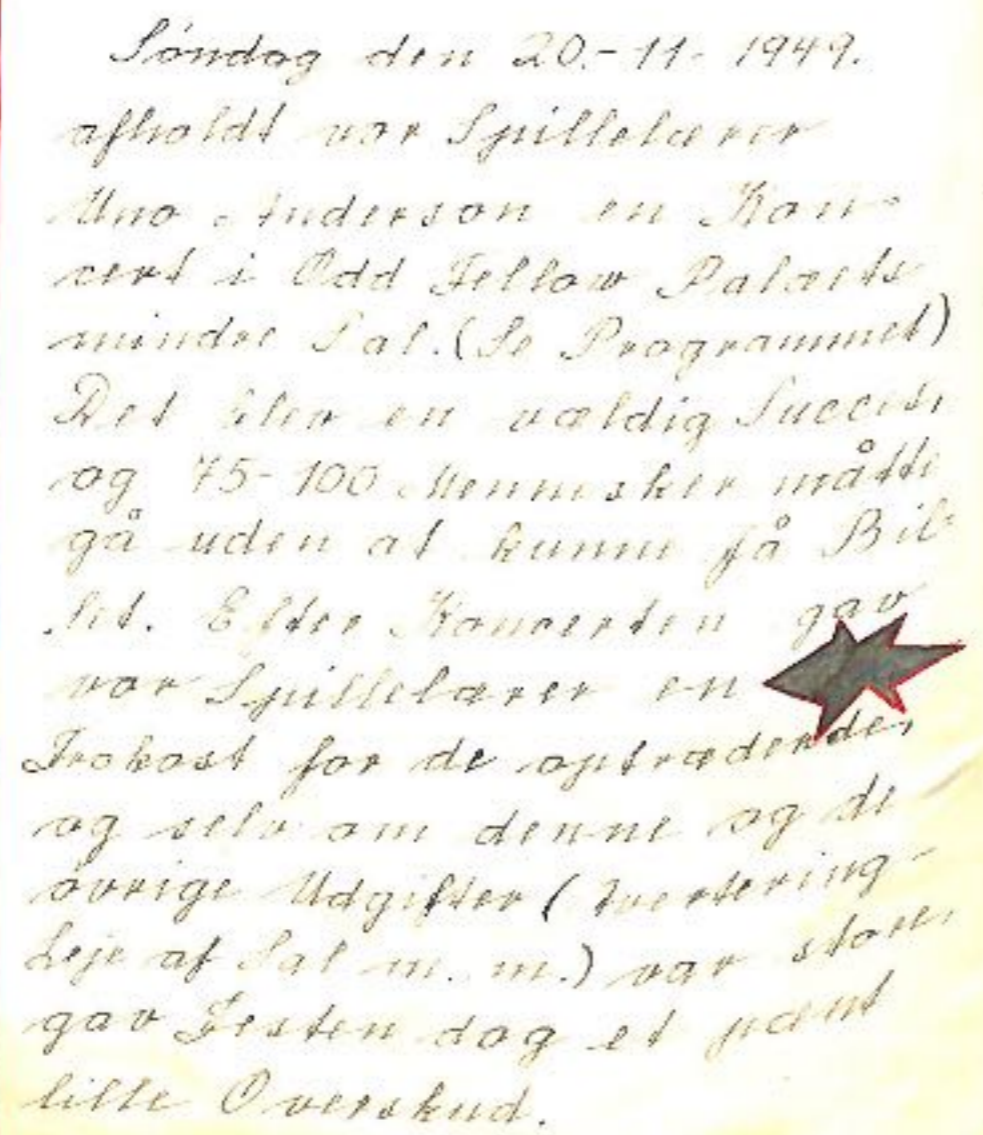 Søndag den 20.-11. 1949.
afholdt vor Spillelærer
Uno Anderson en Kon-
cert i Odd Fellow Palæets
mindre Sal. (Se Programmet)
Det blev en vældig Succes,
og 75-100 Mennesker måtte
gå uden at kunne få Bil-
let. Efter Koncerten gav
vor Spillelærer en
Frokost for de optrædende,
og selv om denne og de
øvrige Udgifter (Avertering-
Leje af Sal m. m.) var store,
gav Festen dog et pænt
lille Overskud.